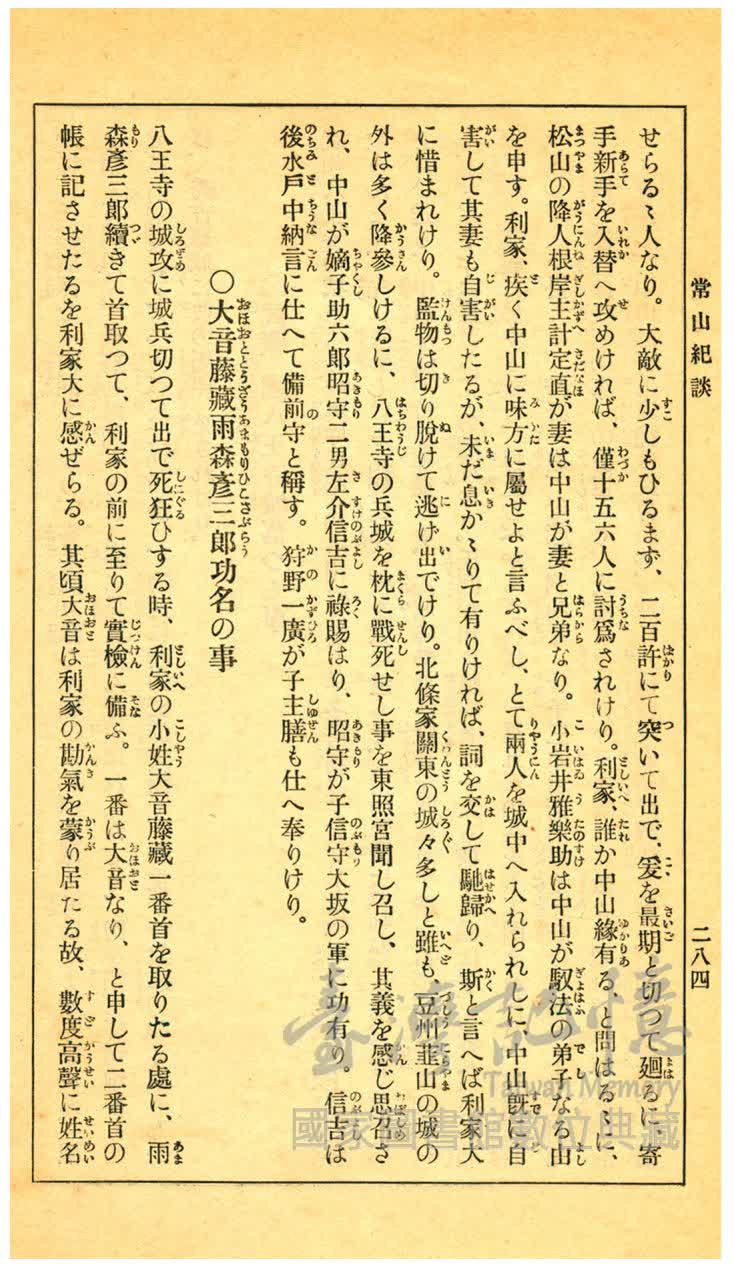 常山紀談
二八四
せらるゝ人なり。大敵に少しもひるまず、二百許にて突いて出で、爰を最期と切つて廻るに、寄
手新手を入替へ攻めければ、僅十五六人に討爲されけり。利家、誰か中山緣有る、と問はるゝに、
松山の降人根岸主計定直が妻は中山が妻と兄弟なり。小岩井雅樂助は中山が馭法の弟子なる由
を申す。利家、疾く中山に味方に屬せよと言ふべし、とて兩人を城中へ入れられしに、中山既に自
害して其妻も自害したるが、未だ息かゝりて有りければ、詞を交して馳歸り、斯と言へば利家大
に惜まれけり。監物は切り脫けて逃げ出でけり。北條家關東の城々多しと雖も、豆州韮山の城の
外は多く降參しけるに、八王寺の兵城を枕に戰死せし事を東照宮聞し召し、其義を感じ思召さ
れ、中山が嫡子助六郎昭守二男左介信吉に祿賜はり、昭守が子信守大坂の軍に功有り。信吉は
後水戶中納言に仕へて備前守と稱す。狩野一廣が子主膳も仕へ奉りけり。
〇大音藤藏雨森彥三郎功名の事
八王寺の城攻に城兵切つて出で死狂ひする時、利家の小姓大音藤藏一番首を取りたる處に、雨
森彥三郎續きて首取つて、利家の前に至りて實檢に備ふ。一番は大音なり、と申して二番首の
帳に記させたるを利家大に感ぜらる。其頃大音は利家の勘氣を蒙り居たる故、數度高聲に姓名
臺灣記憶
Taiwan Memory
國家圖書館數位典藏